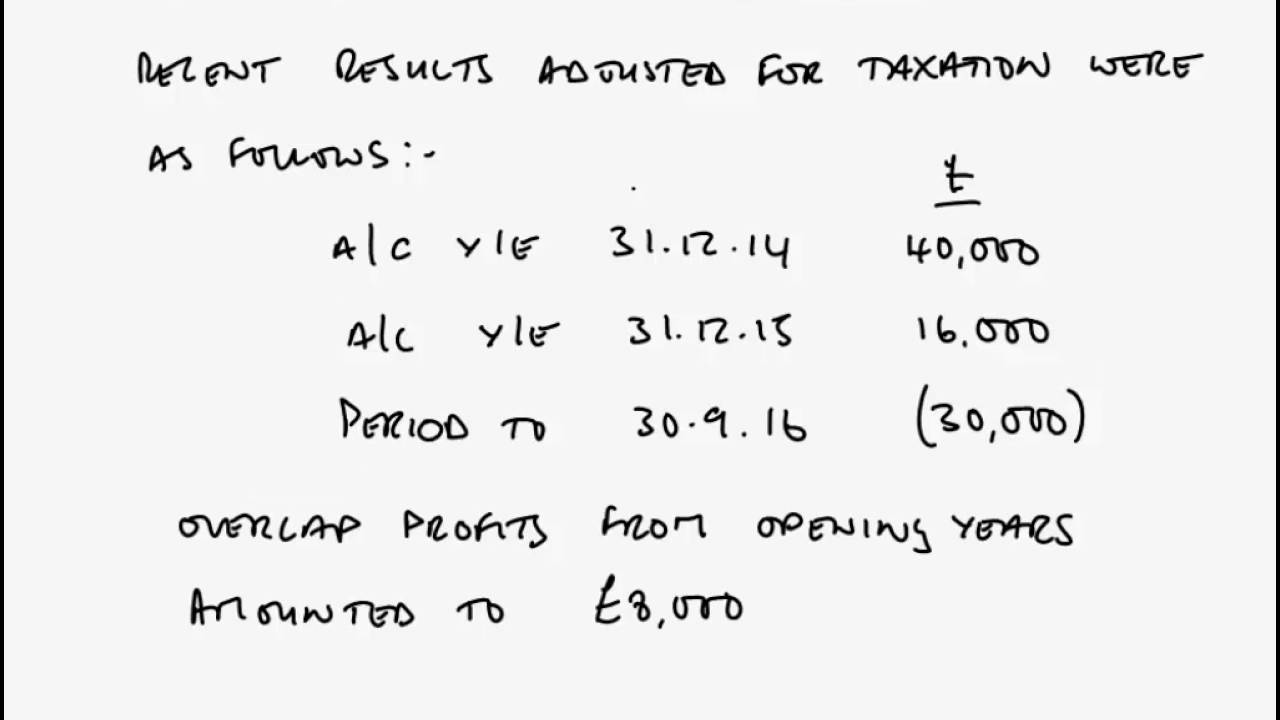 RECENT RESULTS ADJUSTED FOR TAXATION WERE
AS FOLLOWS:-
£
A/C Y/E 31.12.14 40,000
A/C Y/E 31.12.15 16,000
PERIOD TO 30.9.16 (30,000)
OVERLAP PROFITS FROM OPENING YEARS
AMOUNTED TO £8,000